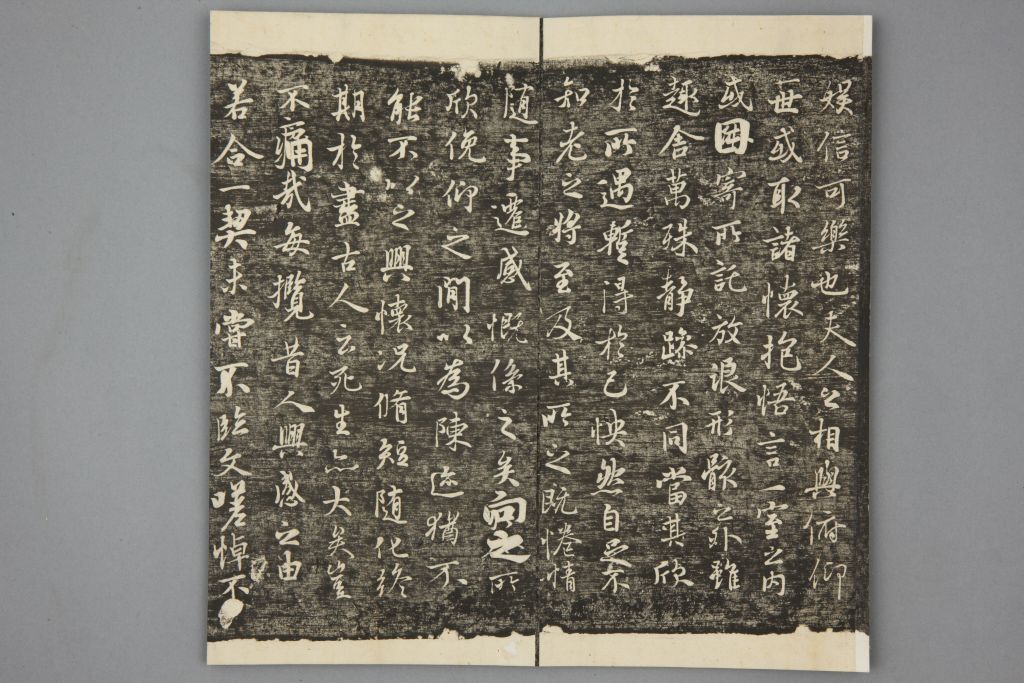 娱信可樂也夫人之相與俯仰
一世或取諸懷抱悟言一室之内
或因寄所託放浪形骸之外雖
趣舍萬殊静躁不同當其欣
於所遇蹔得於己怏然自足不
知老之將至及其所之既惓情
随事遷感慨係之矣向之所
欣俛仰之閒以為陳迹猶不
能不以之興懷况脩短随化終
期於盡古人云死生亦大矣豈
不痛哉每攬昔人興感之由
若合一契未嘗不臨文嗟悼不